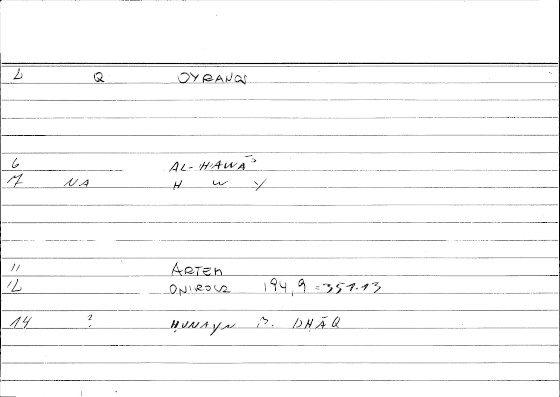 2 Q OYRANOS
6 AL-HAWĀʾ
7 NA H W Y
11 ARTEM
12 ONIROCR 194,9 = 351.13
14 ? ḤUNAYN B. ISḤĀQ